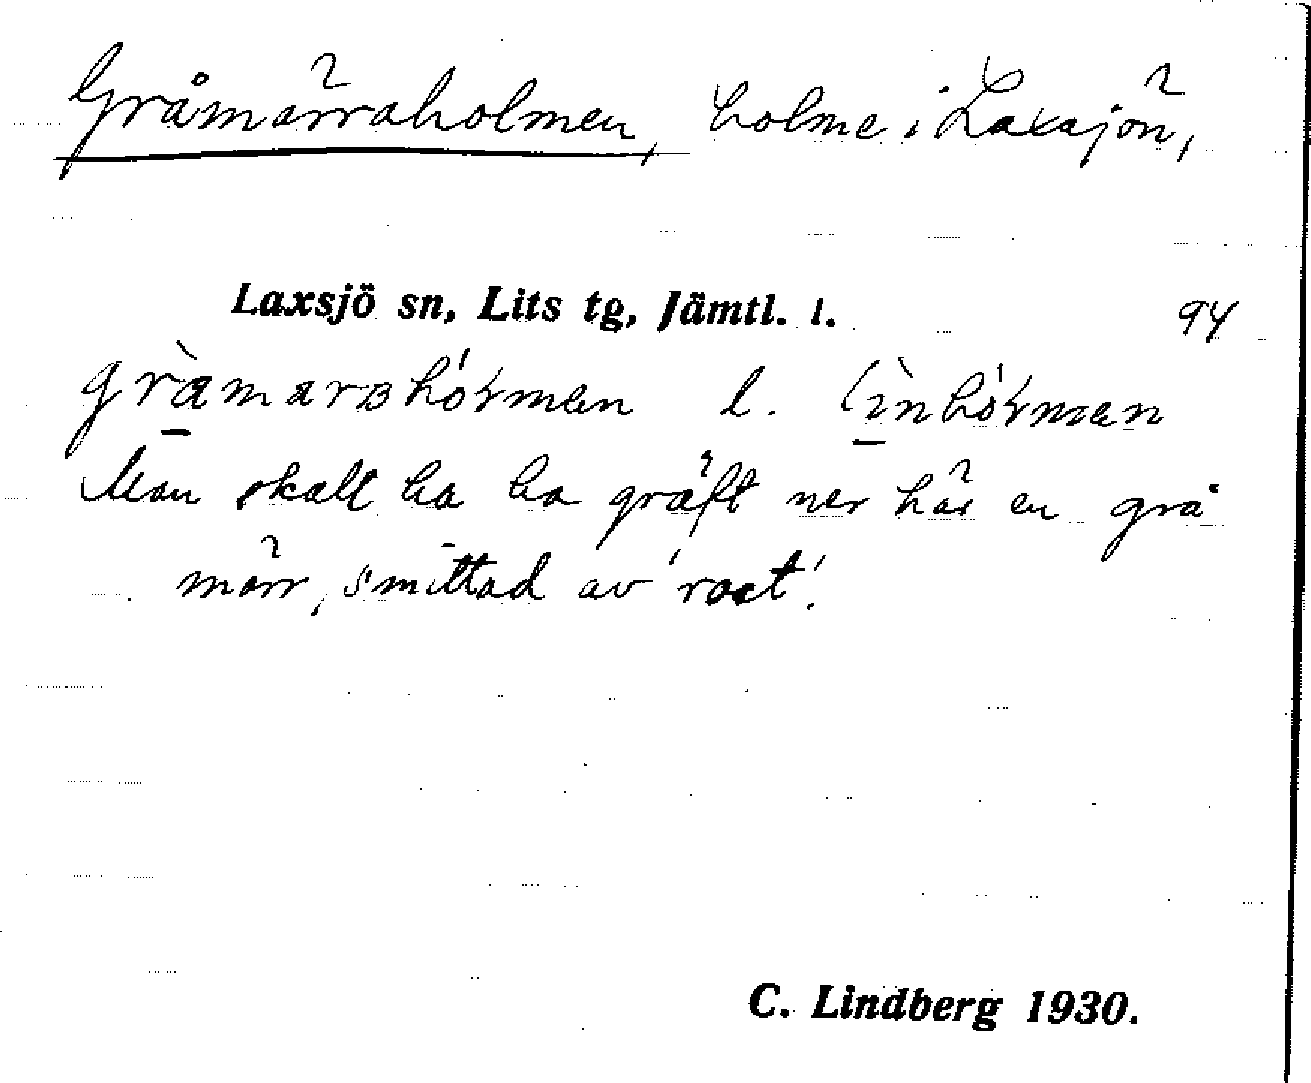 Gråmärraholmen, holme i Laxsjön,
Laxsjö sn, Lits tg, Jämtl. l. 94
l.
Man skall ha ha gräft ner här en grå
märr, smittad av 'rost'.
C. Lindberg 1930.